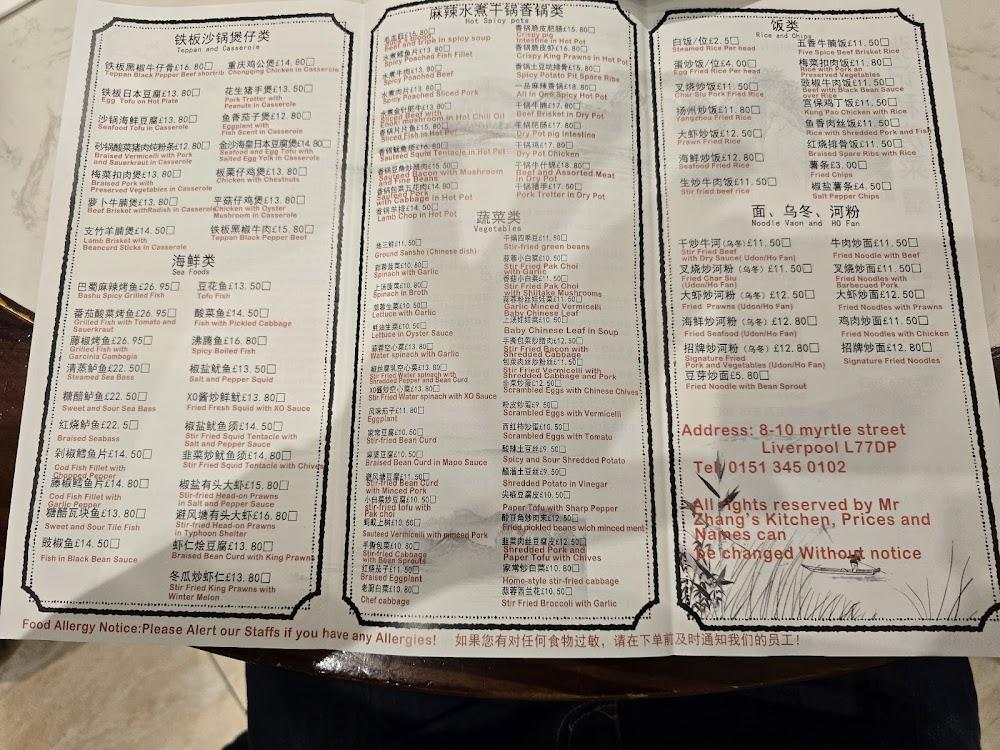 铁板沙锅煲仔类
Teppan and Casserole
铁板黑椒牛仔骨£16.80□
Teppan Black Pepper Beef shortrib
铁板日本豆腐£13.80□
Egg Tofu on Hot Plate
沙锅海鲜豆腐£13.80□
Seafood Tofu in Casserole
砂锅酸菜猪肉炖粉条£12.80□
Braised Vermicelli with Pork
and Sauerkraut in Casserole
梅菜扣肉煲£13.80□
Braised Pork with
Preserved Vegetables in Casserole
萝卜牛腩煲£13.80□
Beef Brisket withRadish in Casserole
支竹羊腩煲£14.50□
Lamb Brisket with
Beancurd Sticks in Casserole
重庆鸡公煲£14.80□
Chongqing Chicken in Casserole
花生猪手煲£13.50□
Pork Trotter with
Peanuts in Casserole
鱼香茄子煲£12.80□
Eggplant with
Fish Scent in Casserole
金沙海皇日本豆腐煲£14.80□
Seafood and Egg Tofu with
Salted Egg Yolk in Casserole
板栗仔鸡煲£13.80□
Chicken with Chestnuts
平菇仔鸡煲£13.80□
Chicken with Oyster
Mushroom in Casserole
铁板黑椒牛肉£15.80□
Teppan Black Pepper Beef
海鲜类
Sea Foods
巴蜀麻辣烤鱼£26.95□
Bashu Spicy Grilled Fish
番茄酸菜烤鱼£26.95□
Grilled Fish with Tomato and
Sauerkraut
藤椒烤鱼£26.95□
Grilled Fish with
Garcinia Cambogia
清蒸鲈鱼£22.50□
Steamed Sea Bass
糖醋鲈鱼£22.50□
Sweet and Sour Sea Bass
红烧鲈鱼£22.5□
Braised Seabass
剁椒鳕鱼片£14.50□
Cod Fish Fillet with
Chopped Pepper
藤椒鳕鱼片£14.80□
Cod Fish Fillet with
Garlic Pepper
糖醋瓦块鱼£13.80□
Sweet and Sour Tile Fish
豉椒鱼£14.50□
Fish in Black Bean Sauce
豆花鱼£13.50□
Tofu Fish
酸菜鱼£14.50□
Fish with Pickled Cabbage
沸腾鱼£16.80□
Spicy Boiled Fish
椒盐鱿鱼£13.50□
Salt and Pepper Squid
XO酱炒鲜鱿£13.80□
Fried Fresh Squid with XO Sauce
椒盐鱿鱼须£14.50□
Stir Fried Squid Tentacle with
Salt and Pepper Sauce
韭菜炒鱿鱼须£14.80□
Stir Fried Squid Tentacle with Chives
椒盐有头大虾£15.80□
Stir-fried Head-on Prawns
in Salt and Pepper Sauce
避风塘有头大虾£16.80□
Stir-fried Head-on Prawns
in Typhoon Shelter
虾仁烩豆腐£13.80□
Braised Bean Curd with King Prawns
冬瓜炒虾仁£13.80□
Stir Fried King Prawns with
Winter Melon
麻辣水煮干锅香锅类
Hot Spicy pots
Beef and tripe in spicy soup
水煮鳕鱼片£13.80□
Spicy Poached Fish Fillet
水煮牛肉£13.80□
Spicy Poached Beef
水煮肉片£13.80□
Spicy Poached Sliced Pork
水煮金针肥牛£13.80□
Enoki mushroom in Hot Chili Oil
香锅片片鱼£15.80□
Sliced Fish in Hot Pot
香锅鱿鱼须£16.80□
Sauteed Squid Tentacle in Hot Pot
香锅豆角炒辣肉£15.50□
Sauteed Bacon with Mushroom
and Fine Beans
香锅包菜五花肉£14.80□
Sauteed Pork
with Cabbage in Hot Pot
香锅羊排£14.50□
Lamb Chop in Hot Pot
香锅脆皮肥肠£15.80□
Crispy pig
Intestine in Hot Pot
香锅脆皮虾£16.80□
Crispy King Prawns in Hot Pot
香锅土豆炕排骨£15.80□
Spicy Potato Pit Spare Ribs
一品麻辣香锅£18.80□
All in One Spicy Hot Pot
干锅牛腩£17.80□
Beef Brisket in Dry Pot
干锅肥肠£17.80□
Dry Pot pig Intestine
干锅鸡£17.80□
Dry Pot Chicken
干锅牛什锦£18.80□
Beef and Assorted Meat
in Dry Pot
干锅猪手£17.50□
Pork Trotter in Dry Pot
蔬菜类
Vegetables
地三鲜£11.50□
Ground Sansho (Chinese dish)
蒜蓉菠菜£10.80□
Spinach with Garlic
上汤菠菜£10.80□
Spinach in Broth
蒜蓉生菜£10.50□
Lettuce with Garlic
蚝油生菜£10.50□
Lettuce in Oyster Sauce
蒜蓉空心菜£13.80□
Water spinach with Garlic
椒丝腐乳空心菜£13.80□
Stir Fried Water spinach with
Shredded Pepper and Bean Curd
XO酱炒空心菜£13.80□
Stir Fried Water spinach with XO Sauce
风味茄子£11.80□
Eggplant
家常豆腐£10.50□
Stir-fried Bean Curd
麻婆豆腐£10.50□
Braised Bean Curd in Mapo Sauce
避风塘豆腐£11.50□
Stir-fried Bean Curd
with Minced Pork
小白菜炒豆腐£10.50□
Stir-fried tofu with
Pak choi
蚂蚁上树£10.50□
Sauteed Vermicelli with minced Pork
手撕包菜£10.80□
Stir-fried Cabbage
with Bean Sprouts
红烧茄子£11.50□
Braised Eggplant
老厨白菜£10.80□
Chef cabbage
干煸四季豆£11.50□
Stir-fried green beans
蒜蓉小白菜£10.50□
Stir Fried Pak Choi
with Garlic
香菇小白菜£10.50□
Stir Fried Pak Choi
with Shiitake Mushrooms
蒜蓉粉丝娃娃菜£11.50□
Garlic Minced Vermicelli
Baby Chinese Leaf
上汤娃娃菜£10.50□
Baby Chinese Leaf in Soup
手撕包菜炒腊肉£12.50□
Stir Fried Bacon with
Shredded Cabbage
包菜肉丝炒粉丝£11.50□
Stir Fried Vermicelli with
Shredded Cabbage and Pork
韭菜炒蛋£12.50□
Scrambled Eggs with Chinese Chives
粉皮炒蛋£9.50□
Scrambled Eggs with Vermicelli
西红柿炒蛋£10.50□
Scrambled Eggs with Tomato
酸辣土豆丝£9.50□
Spicy and Sour Shredded Potato
醋溜土豆丝£9.50□
Shredded Potato in Vinegar
尖椒豆腐皮£10.50□
Paper Tofu with Sharp Pepper
酸豆角炒肉末£12.50□
Fried pickled beans wich minced ment
韭菜肉丝豆腐皮£12.50□
Shredded Pork and
Paper Tofu with Chives
家常炒白菜£10.80□
Home-style stir-fried cabbage
蒜蓉西兰花£10.50□
Stir Fried Broccoli with Garlic
饭类
Rice and Chips
白饭/位£2.5□
Steamed Rice Per head
蛋炒饭/位£4.00□
Egg Fried Rice Per head
叉烧炒饭£11.50□
Char Siu Pork Fried Rice
扬州炒饭£11.80□
Yangzhou Fried Rice
大虾炒饭£12.50□
Prawn Fried Rice
海鲜炒饭£12.80□
Seafood Fried Rice
生炒牛肉饭£11.50□
Stir fried beef rice
五香牛腩饭£11.50□
Five Spice Beef Brisket Rice
梅菜扣肉饭£11.80□
Rice with Pork an
Preserved Vegetables
豉椒牛肉饭£11.50□
Beef with Black Bean Sauce
over Rice
宫保鸡丁饭£11.50□
Kung Pao Chicken with Rice
鱼香肉丝饭£11.50□
Rice with Shredded Pork and Fish
红烧排骨饭£11.50□
Braised Spare Ribs with Rice
薯条£3.00□
Fried Chips
椒盐薯条£4.50□
Salt and Pepper Chips
面、乌冬、河粉
Noodle Vaon and HO Fan
干炒牛河(乌冬)£11.50□
Stir Fried Beef
with Dry Sauce( Udon/Ho Fan)
叉烧炒河粉（乌冬）£11.50□
Fried Char Siu
(Udon/Ho Fan)
大虾炒河粉（乌冬）£12.50□
Fried Prawns (Udon/Ho Fan)
海鲜炒河粉（乌冬）£12.80□
Fried Seafood (Udon/Ho Fan)
招牌炒河粉（乌冬）£12.80□
Signature Fried
Pork and Vegetables (Udon/Ho Fan)
豆芽炒面£5.80□
Fried Noodle with Bean Sprout
牛肉炒面£11.50□
Fried Noodle with Beef
叉烧炒面£11.50□
Fried Noodles with
Barbecued Pork
大虾炒面£12.50□
Fried Noodles with Prawns
鸡肉炒面£11.50□
Fried Noodles with Chicken
招牌炒面£12.80□
Signature Fried Noodles
Address: 8-10 myrtle street
Liverpool L77DP
Tel: 0151 345 0102
All rights reserved by Mr
Zhang's Kitchen, Prices and
Names can
be changed Without notice
Food Allergy Notice:Please Alert our Staffs if you have any Allergies! 如果您有对任何食物过敏，请在下单前及时通知我们的员工!